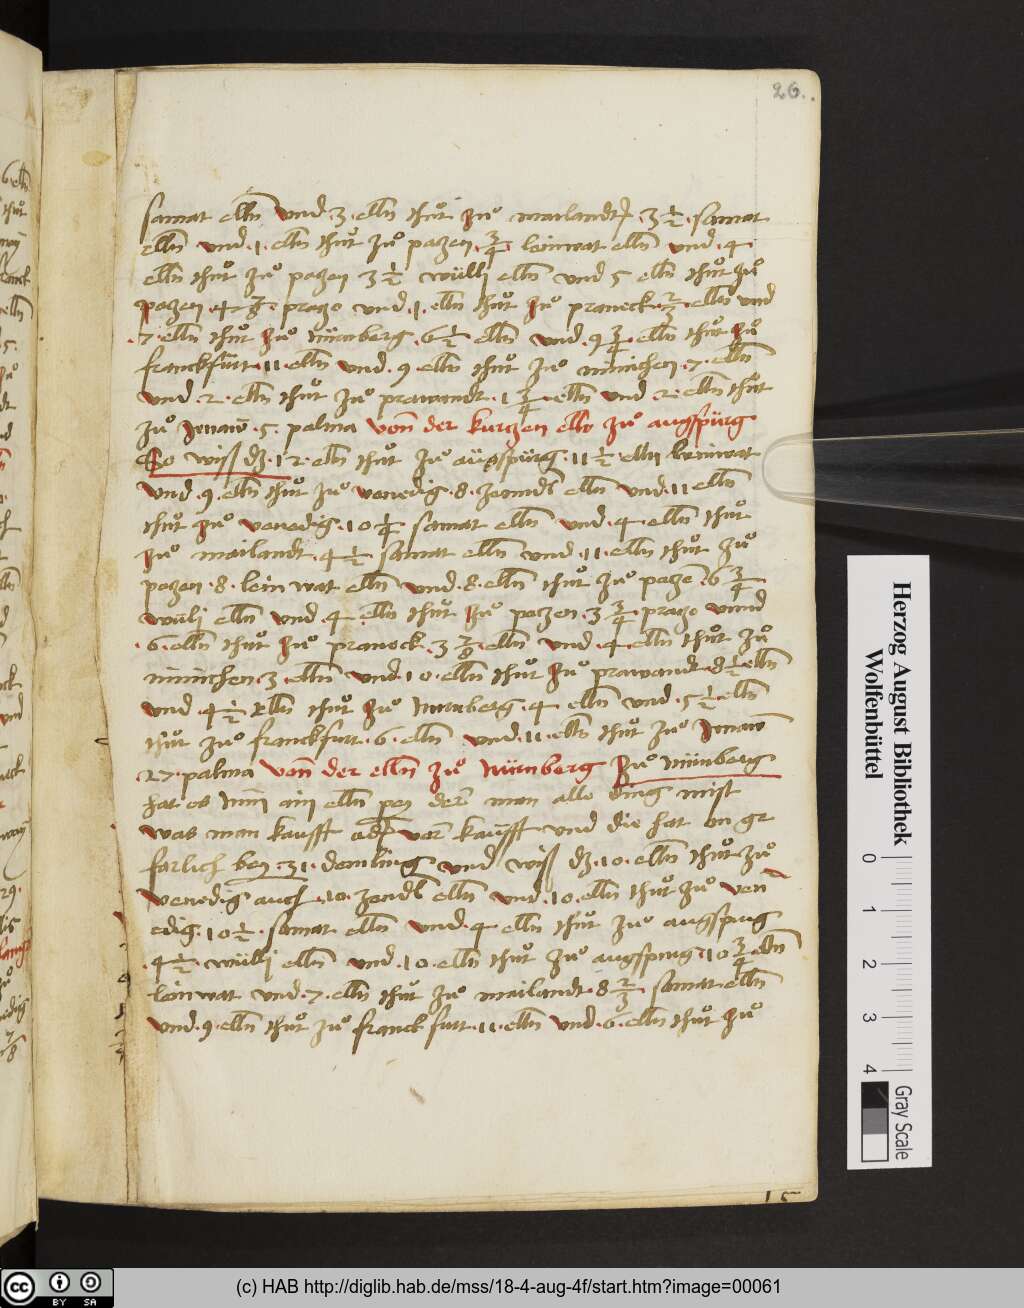 26.
samat elln und 3 · elln thut zu mailandt 3 1/2 · samat
elln und · 1 · elln thut zu pozen · 3/4 leinwat elln und · 4 ·
elln thut zu pozen 3 1/2 wulli elln und 5 elln thut zu
pozen · 4 7/8 · prazo und · 1 · elln thut zu praneck 2/3 · elln und
· 7 · elln thut zu nürnberg · 6 1/2 elln und · 9 3/4 · elln thut zu
franckfurt · 11 · elln und · 9 · elln thut zu münichen · 7 · elln
und · 2 · elln thut zu prawandt · 1 3/4 · elln und · 2 · elln thut
zu Jenaw · 5 · palma von der kurtzen elln zu augspurg
So wiss dz · 12 · elln thut zu augspurg · 11 1/2 · elln leinwat
und · 9 · elln thut zu venedig · 8 · zenndl elln und · 11 elln
thut zu venedig · 10 1/4 samat elln und · 4 · elln thut
zu mailandt · 4 1/2 samat elln und · 11 · elln thut zu
pozen · 8 · leinwat elln und · 8 · elln thut zu pozen 6 3/4
wuli elln und 4 · elln thut zu pozen · 3 3/4 prazo unnd
· 6 · elln thut zu praneck · 3 7/9 · elln und · 4 · elln thut zu
münichen · 3 · elln und · 10 · elln thut zu prawandt · 8 1/2 elln
und · 4 1/2 elln thut zu nurnberg · 4 elln und · 5 1/2 elln
thut zu franckfurt · 6 · elln und · 11 · elln thut zu Jenaw
27 · palma von der elln zu nürnberg Zu nürnberg
hat es nun ain elln pey der man alle ding mist
was man kaufft oder verkaufft und die hat on ge
farlich bey · 31 · demling und wiss dz · 10 · elln thut zu
venedig auch · 10 · zendl elln und · 10 · elln thut zu ven
edig · 10 1/2 · samat elln und · 4 elln thut zu augspurg
· 4 1/2 · wülli elln und · 10 · elln thut zu augspurg · 10 3/4 elln
leinwat und · 7 · elln thut zu mailandt · 8 2/3 samat elln
und · 9 · elln thut zu franckfurt · 11 · elln und · 6 · elln thut zu
Herzog August Bibliothek
Wolfenbüttel
0 1 2 3 4
Gray Scale
cc BY SA
(c) HAB http://diglib.hab.de/mss/18-4-aug-4f/start.htm?image=00061